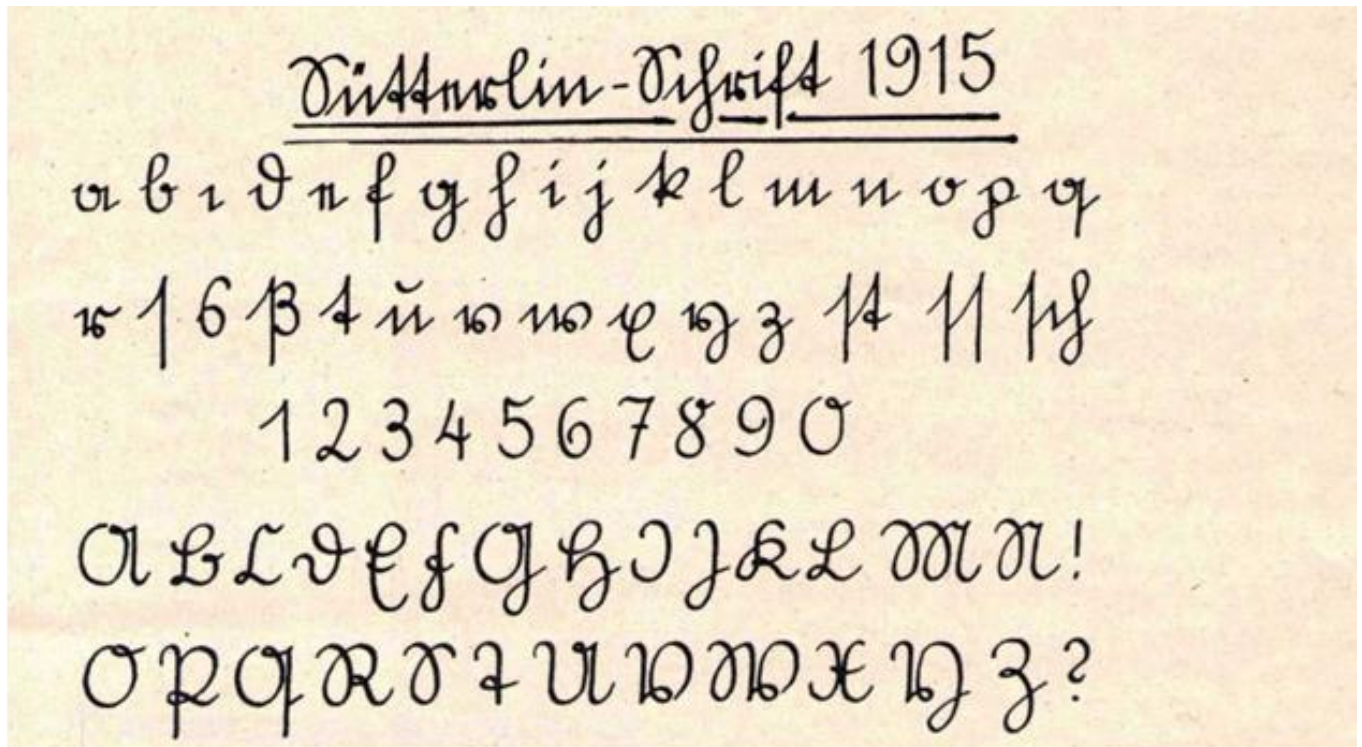 Sütterlin-Schrift 1915
a b c d e f g h i j k l m n o p q
r ſ s ß t u v w x y z ſt ſſ ſch
1 2 3 4 5 6 7 8 9 0
A B C D E F G H I J K L M N !
O P Q R S T U V W X Y Z ?